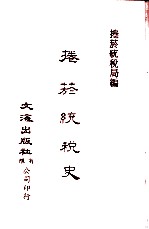 捲菸統稅局編
捲菸統稅史
文海出版社有限公司印行